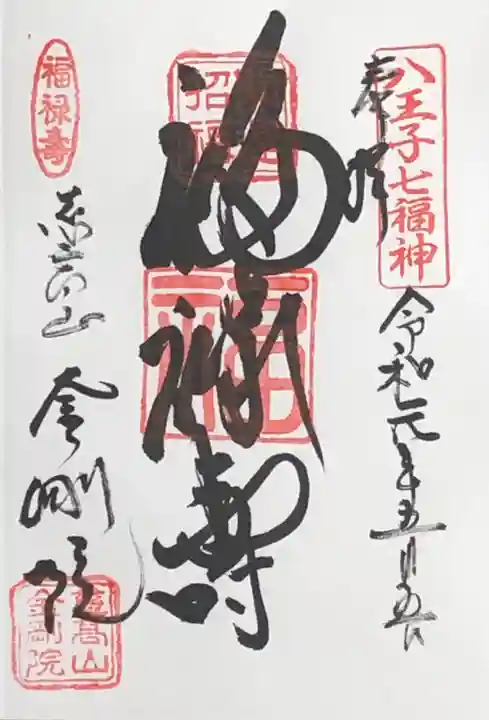 八王子七福神
奉拝
令和元年五月五日
福禄壽
福
福禄壽
慈高山
金剛院
慈高山
金剛院